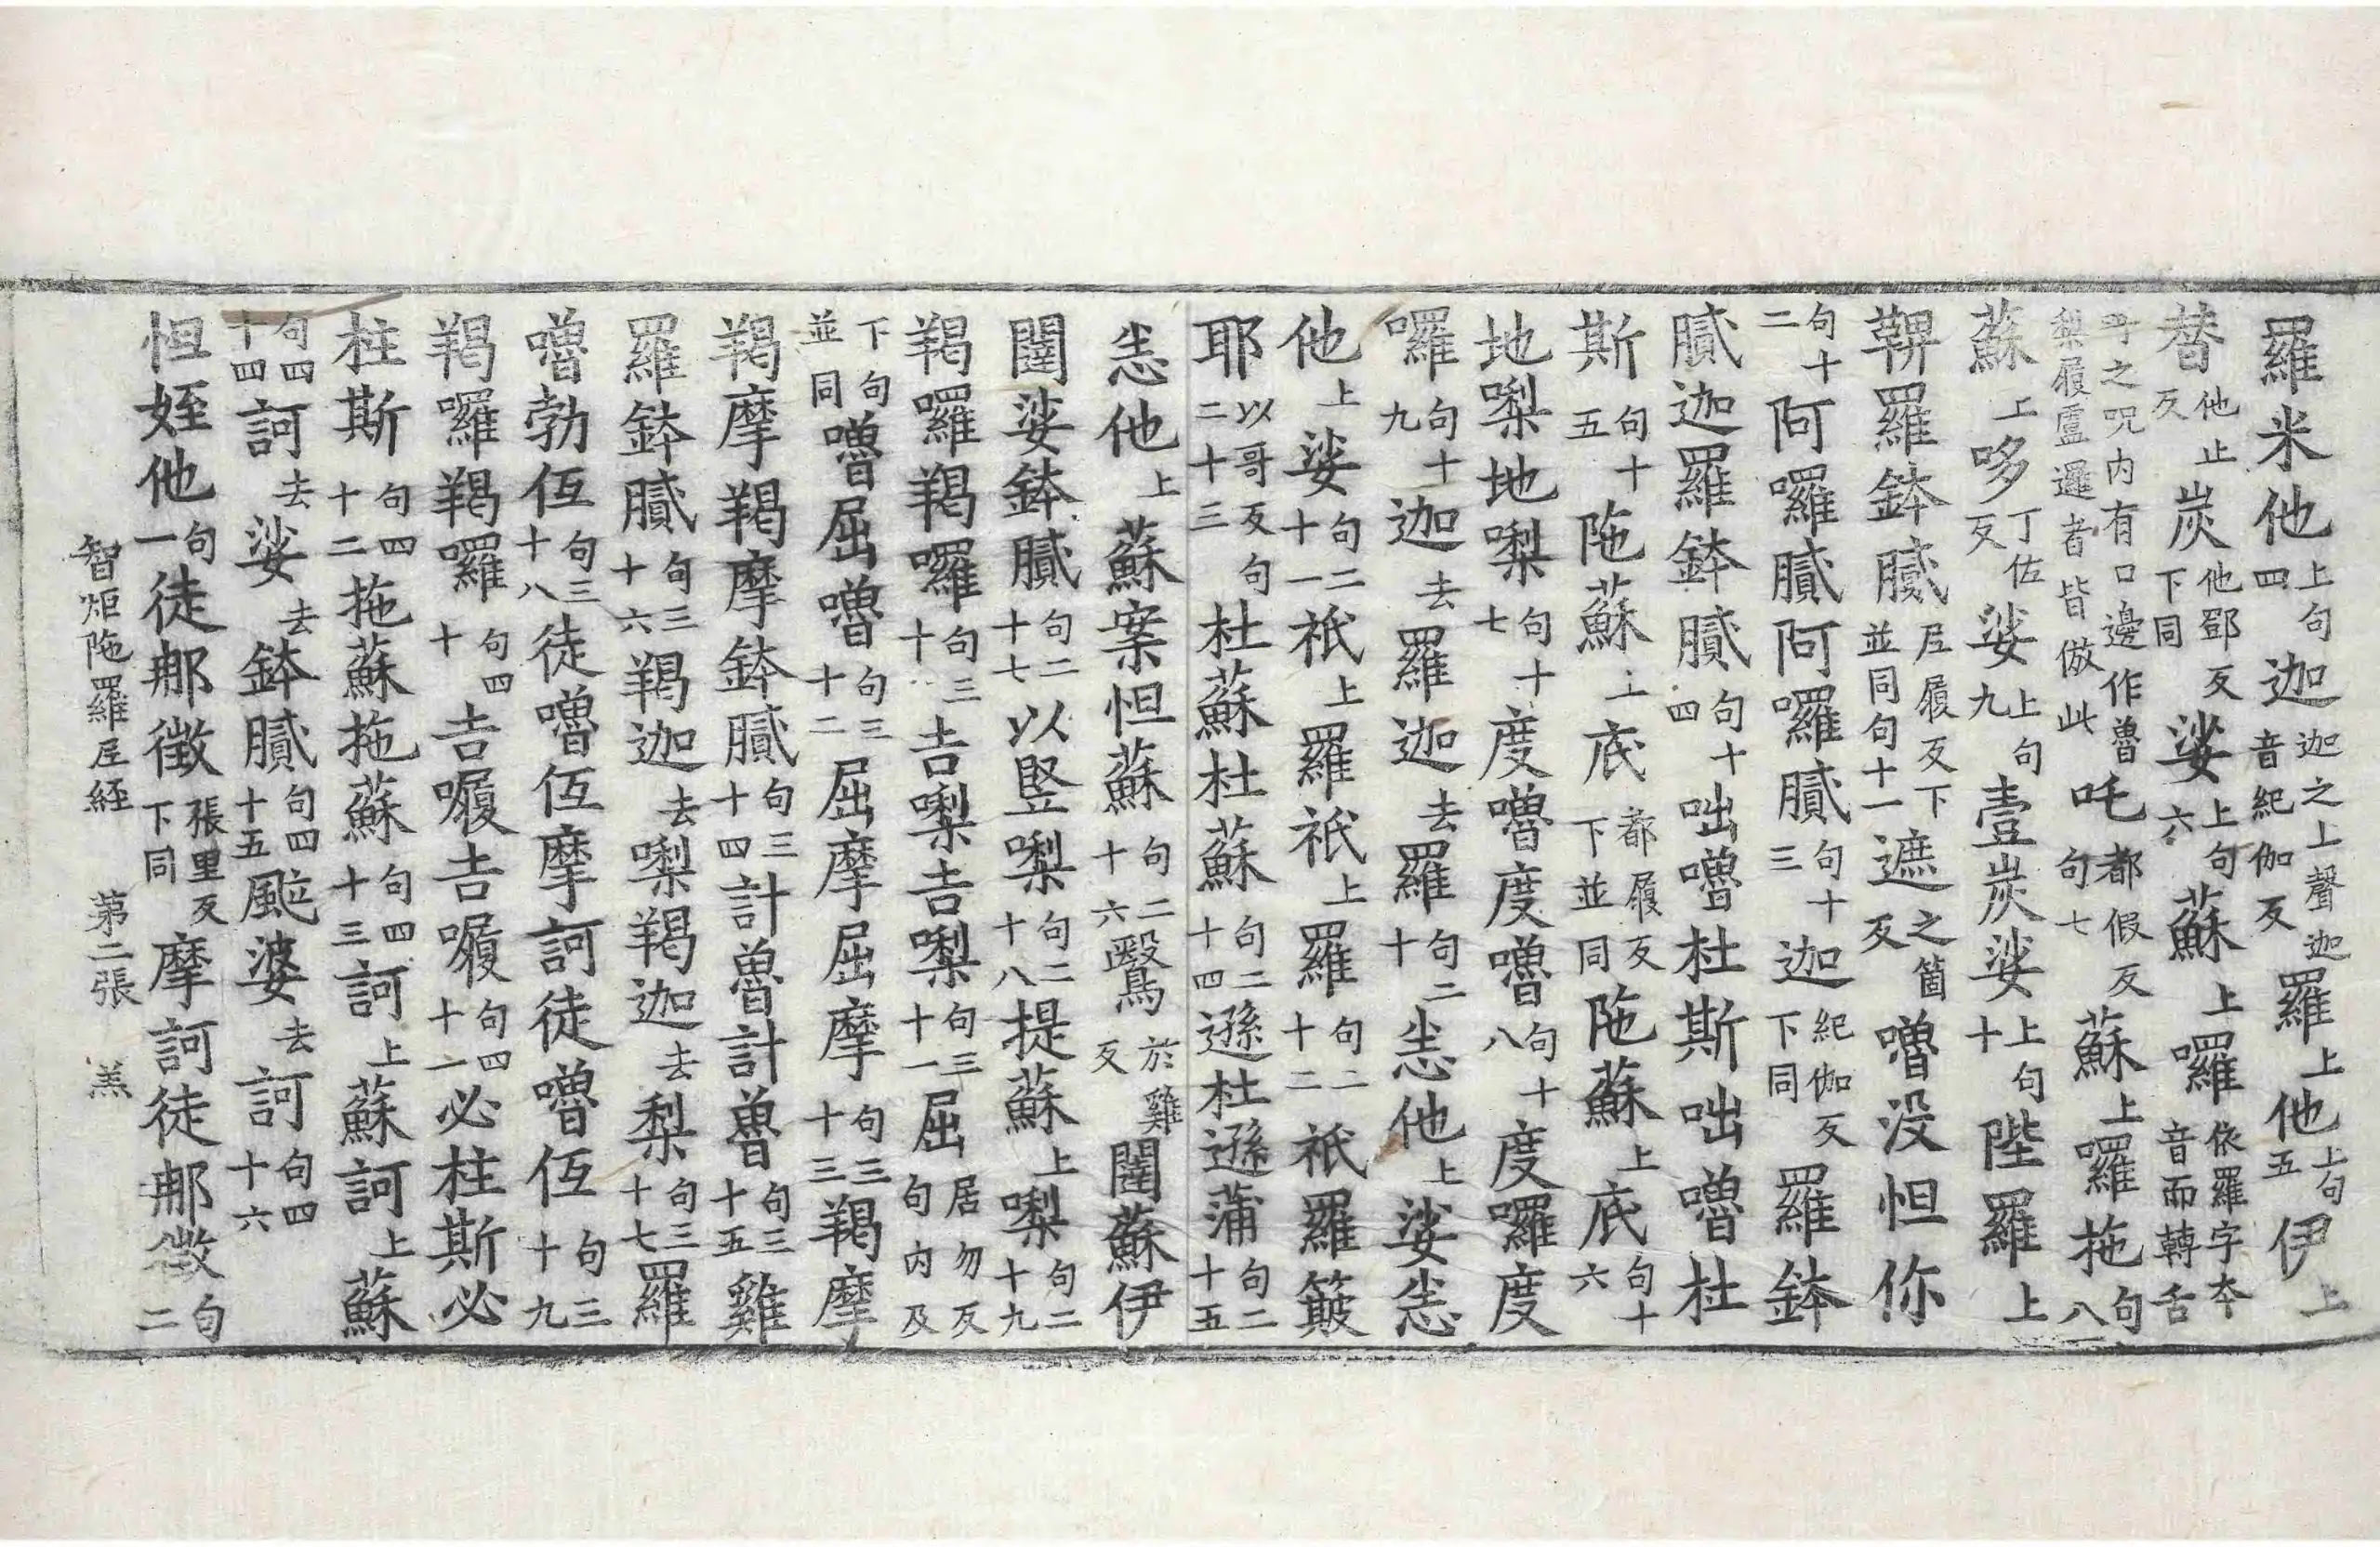 羅米他上句四迦迦之上聲迦音紀伽反羅上他上句五伊上
替他止反炭他鄧反下同娑上句六蘇上囉依羅字夲音而轉舌
号之呪内有口邊作魯梨履盧邏者皆倣此吒都假反句七蘇上囉拖句八
蘇上哆丁佐反娑上句九壹炭娑上句十陛羅上
鞞羅鉢膩尼履反下並同句十一遮之箇反嚕没怛你
句十二阿囉膩阿囉膩句十三迦紀伽反下同羅鉢
膩迦羅鉢膩句十四咄嚕杜斯咄嚕杜
斯句十五陁蘇上底都履反下並同陁蘇上底句十六
地𠼝地𠼝句十七度嚕度嚕句十八度囉度
囉句十九迦去羅迦去羅句二十恙他上娑恙
他上娑句二十一祇上羅祇上羅句二十二祇羅簸
耶以哥反句二十三杜蘇杜蘇句二十四遜杜遜蒲句二十五
恙他上蘇案怛蘇句二十六鷖於雞反闥蘇伊
闥娑鉢膩句二十七以竪𠼝句二十八提蘇上𠼝句二十九
羯囉羯囉句三十吉𠼝吉𠼝句三十一屈居勿反句内及
下句並同嚕屈嚕句三十二屈摩屈摩句三十三羯摩
羯摩羯摩鉢膩句三十四計魯計魯句三十五雞
羅鉢膩句三十六羯迦去𠼝羯迦去梨句三十七羅
嚕勃仾句三十八徒嚕仾摩訶徒嚕仾句三十九
羯囉羯囉句四十吉吉句四十一必柱斯必
柱斯句四十二拖蘇拖蘇句四十三訶上蘇訶上蘇
句四十四訶去娑去鉢膩句四十五颯婆去訶句四十六
怛姪他句一徒那徵張里反下同摩訶徒那徵句二
智炬陁羅尼経 第二張 羔